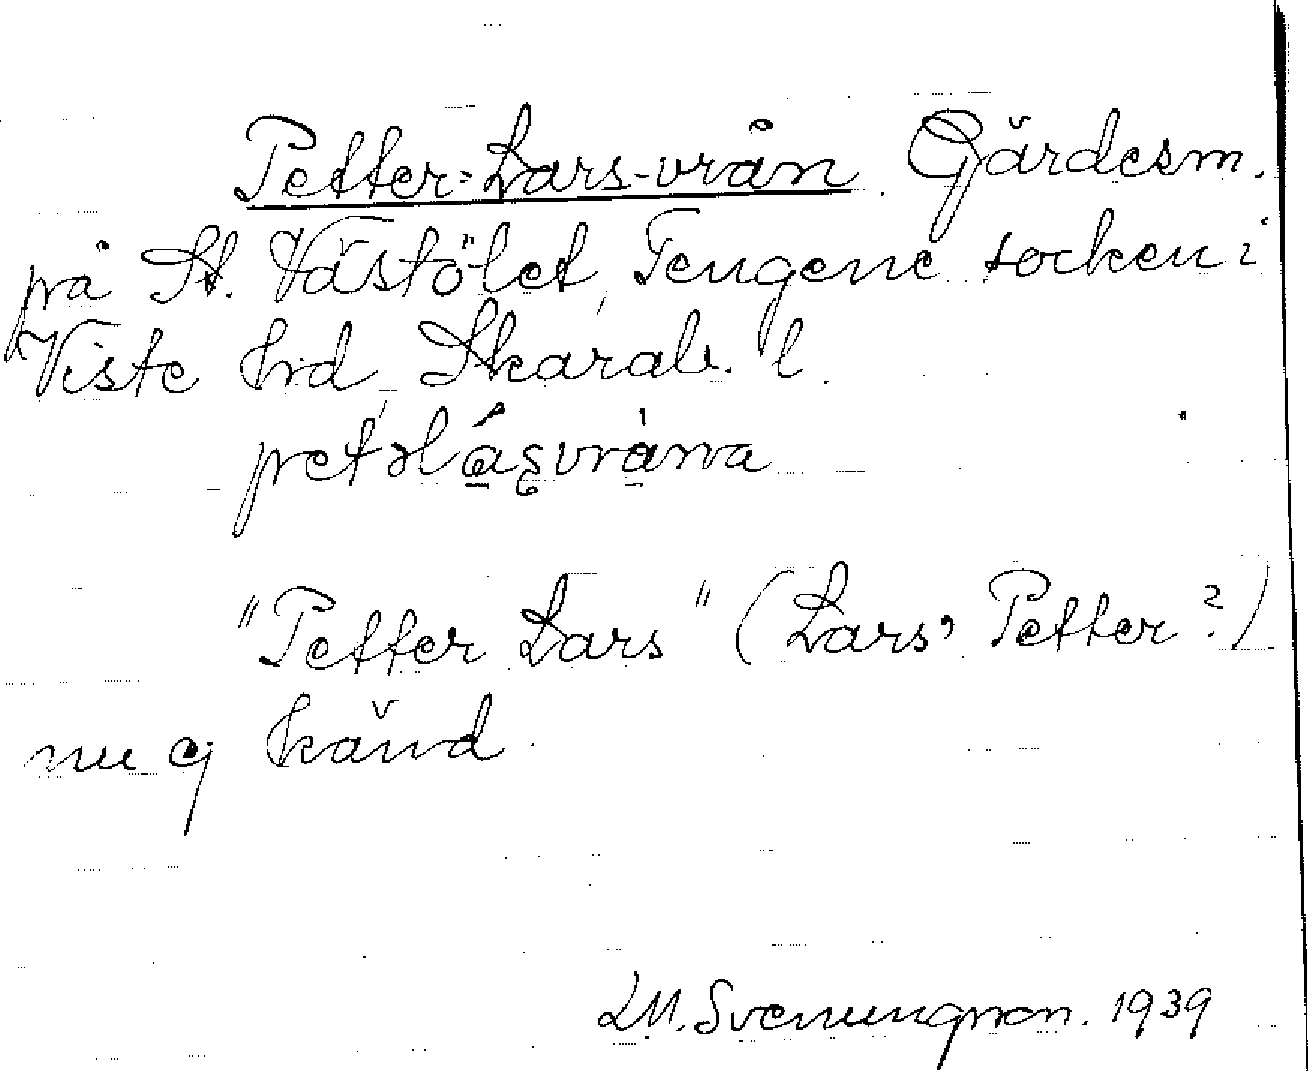 Petter-Lars-vrån Gärdesm.
på St. Västölet, Tengene socken i
Viste hrd, Skarab. l.
petəláʂvrȧna
"Petter Lars" (Lars, Petter?)
nu ej känd
LM. Svenungsson. 1939